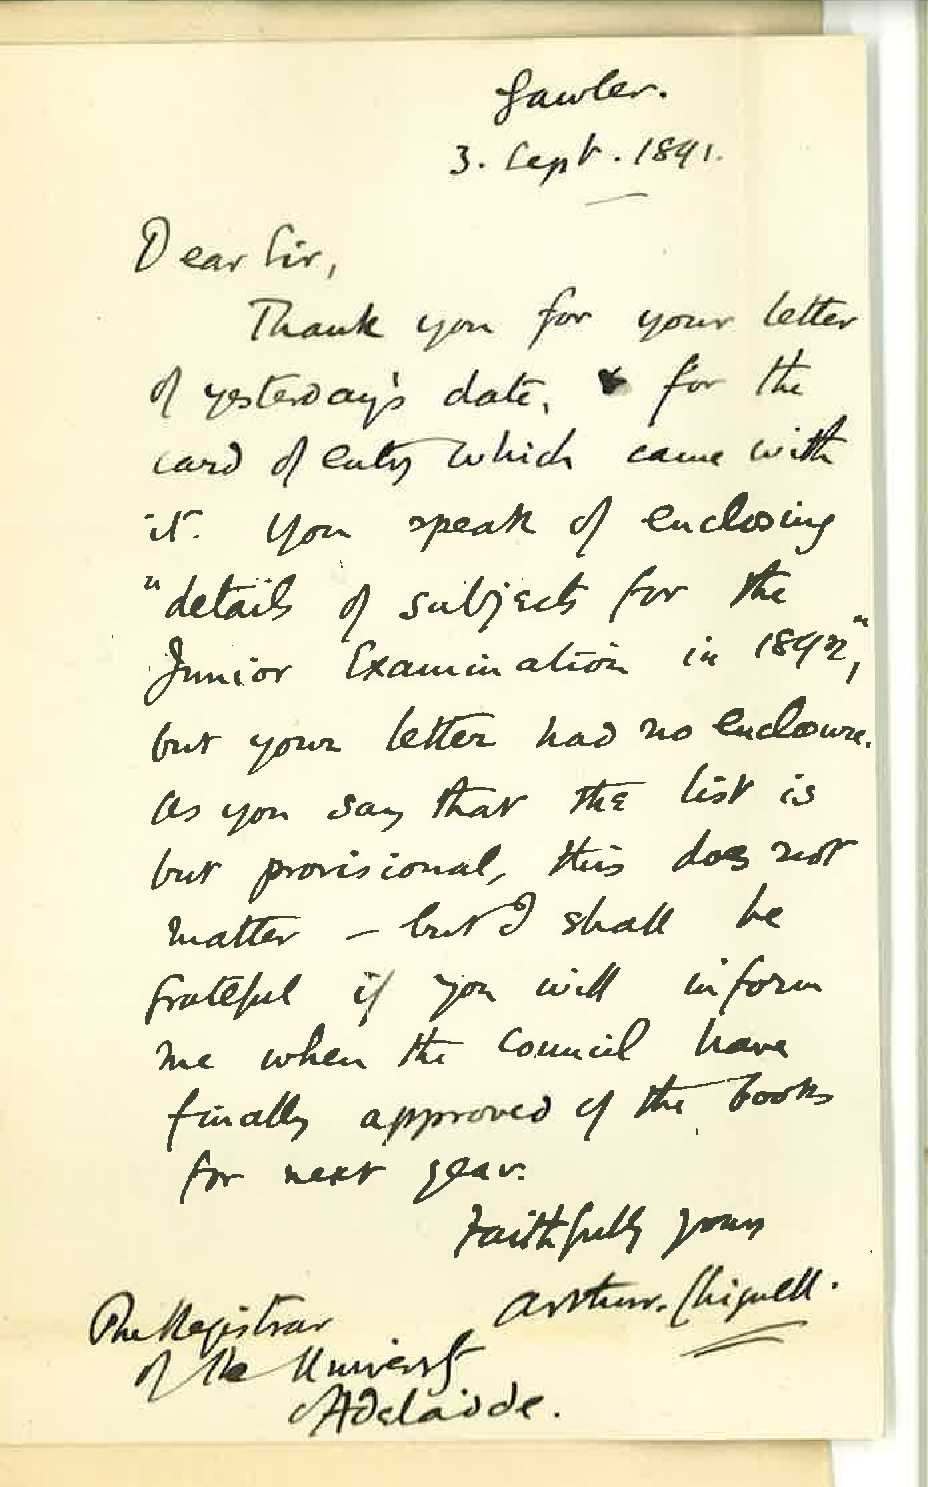 Gawler.
3. Sept. 1891.
Dear Sir,
Thank you for your letter
of yesterday's date, & for the
card of entry which came with
it. You speak of enclosing
"details of subjects for the
Junior Examination in 1892",
but your letter had no enclosure.
As you say that the list is
but provisional, this does not
matter – but I shall be
grateful if you will inform
me when the Council have
finally approved of the books
for next year.
Faithfully yours
Arthur. Chignell.
The Registrar
of the University
Adelaide.